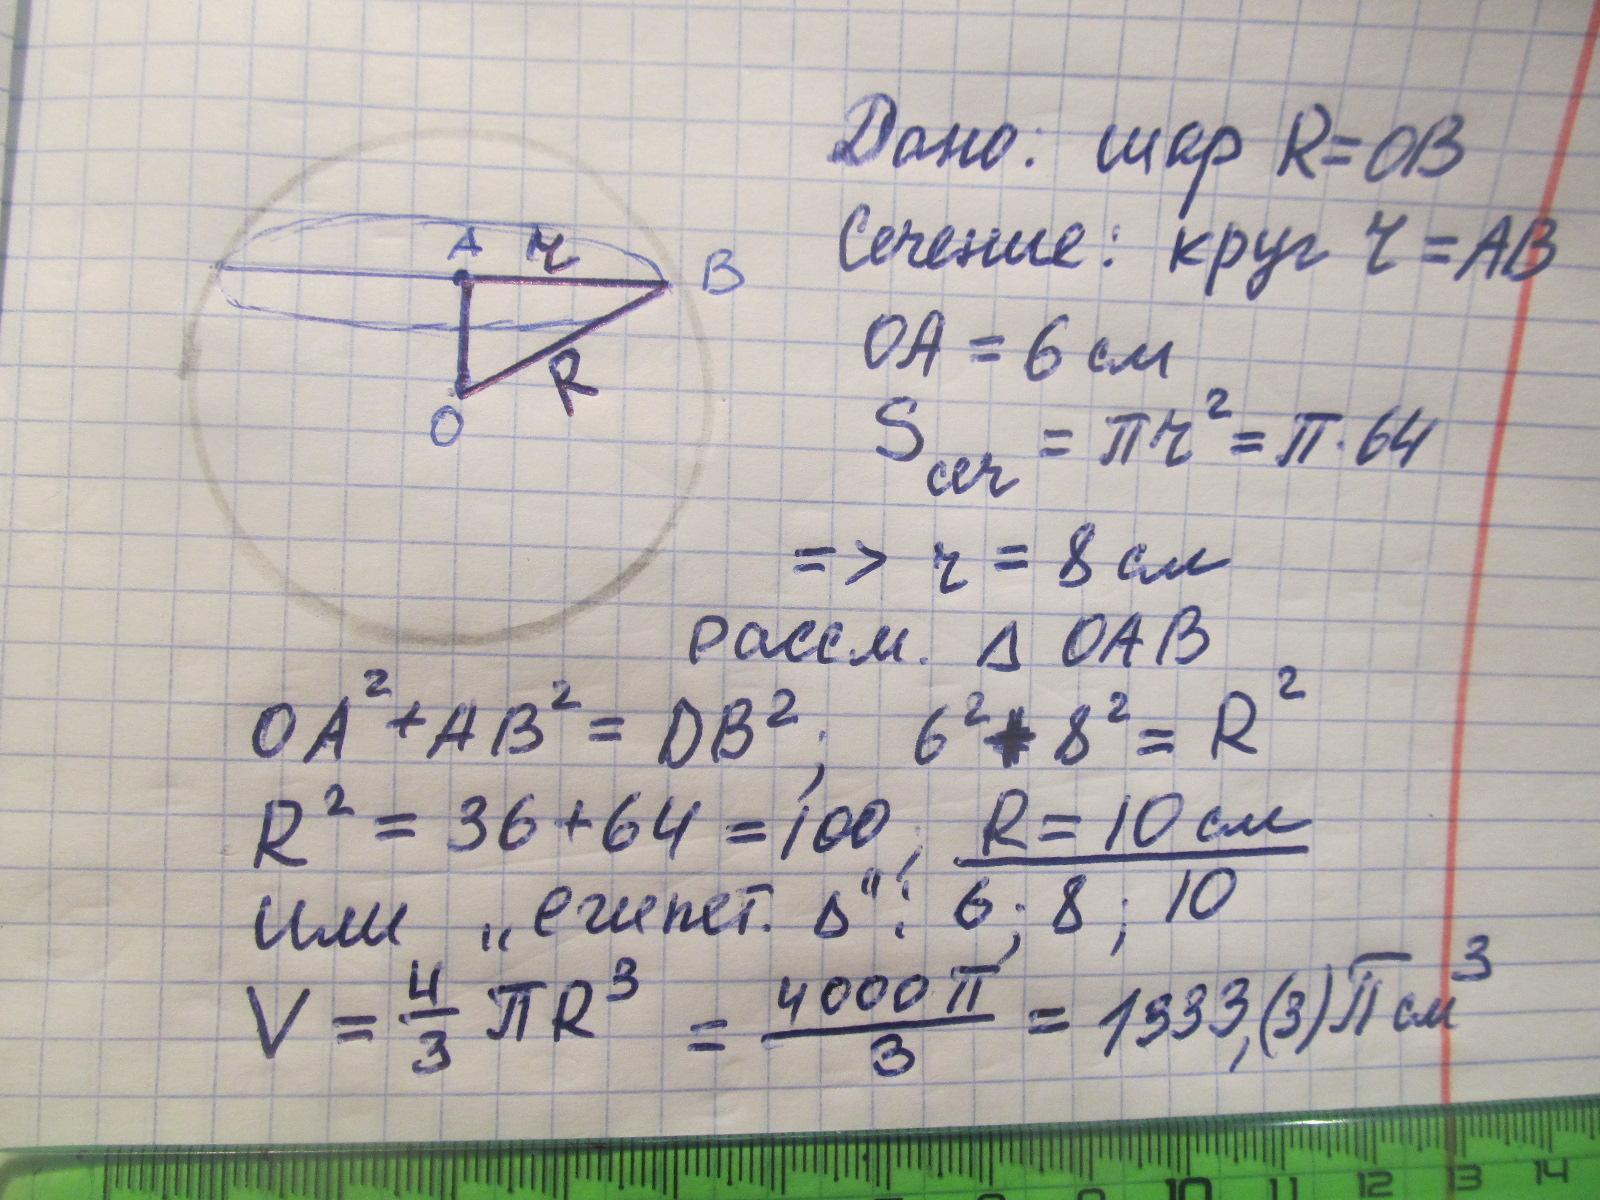 Дано: шар R=OB
A r B
Сечение: круг r = AB
OA = 6 см
R
O
S сеч = πr² = π·64
=> r = 8 см
рассм. Δ OAB
OA² + AB² = OB²; 6² + 8² = R²
R² = 36 + 64 = 100; R = 10 см
или „египет. Δ": 6; 8; 10
V = 4/3 πR³ = 4000π/3 = 1333,(3)π см³
10 11 12 13 14